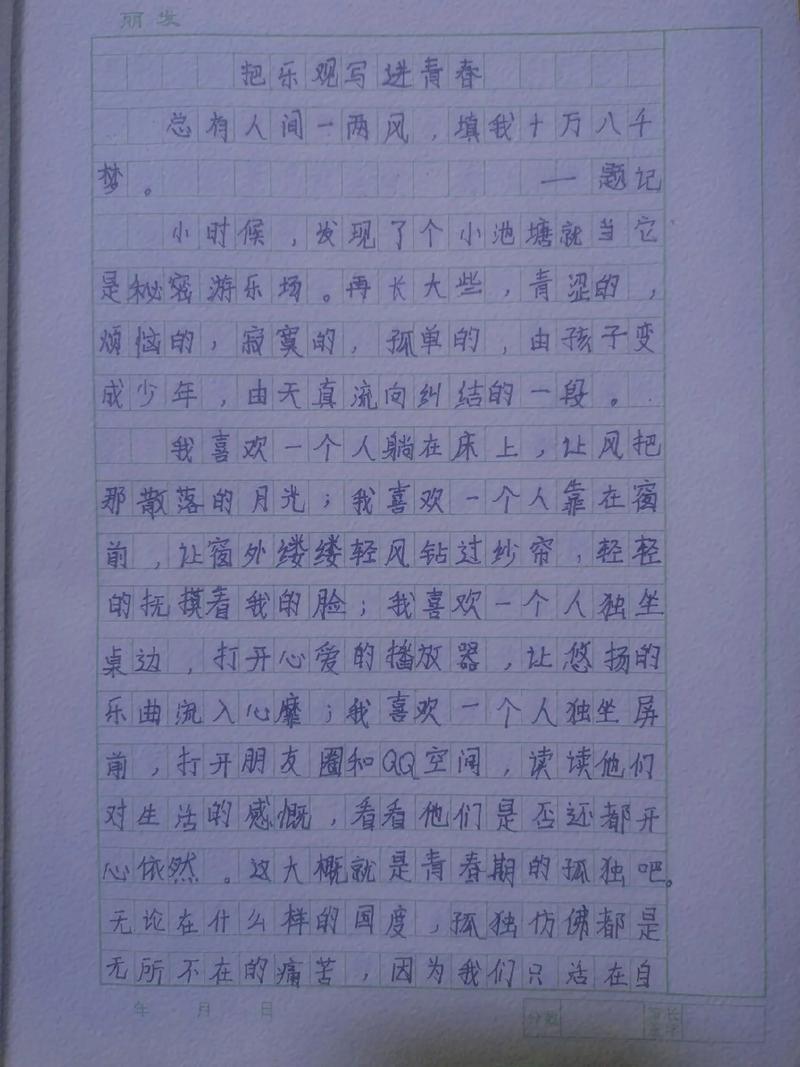 丽发
把乐观写进青春
总有人间一两风，填我十万八千
梦。 — 题记
小时候，发现了个小池塘就当它
是秘密游乐场。再长大些，青涩的，
烦恼的，寂寞的，孤单的，由孩子变
成少年，由天真流向纠结的一段。
我喜欢一个人躺在床上，让风把
那散落的月光；我喜欢一个人靠在窗
前，让窗外缕缕轻风钻过纱帘，轻轻
的抚摸着我的脸；我喜欢一个人独坐
桌边，打开心爱的播放器，让悠扬的
乐曲流入心靡；我喜欢一个人独坐屏
前，打开朋友圈和QQ空间，读读他们
对生活的感慨，看看他们是否还都开
心依然。这大概就是青春期的孤独吧。
无论在什么样的国度，孤独仿佛都是
无所不在的痛苦，因为我们只活在自
年 月 日 分数